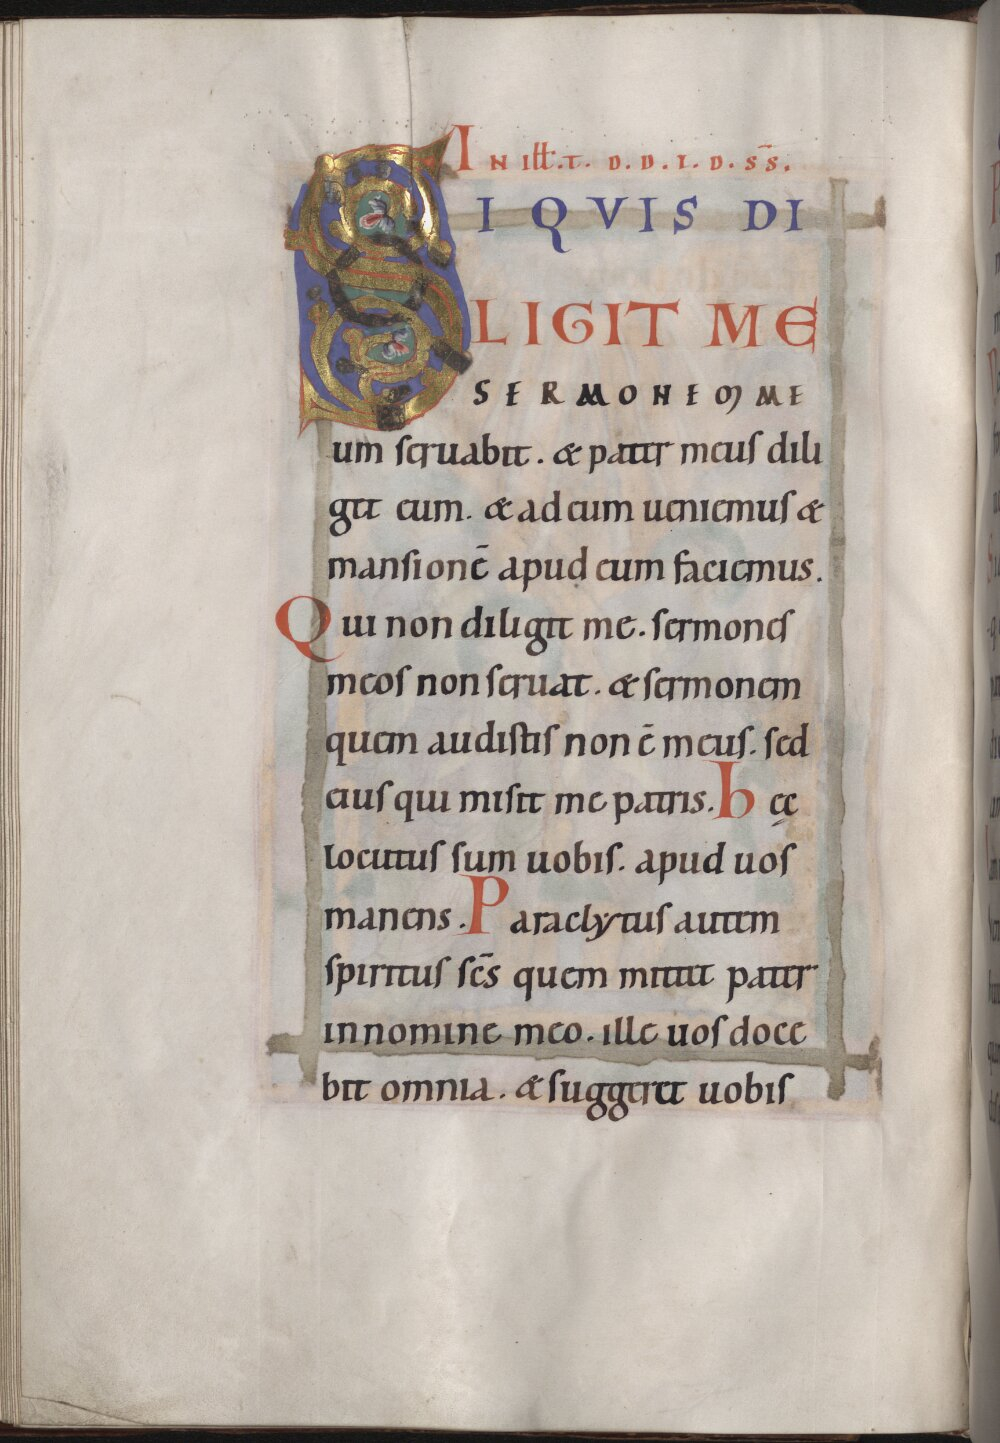 IN ILLT. T. D. D. I. D. S̄S̄.
SI QVIS DI
LIGIT ME
SERMONEM ME
um seruabit. & pater meus dili
git eum. & ad eum ueniemus &
mansionē apud eum faciemus.
Qui non diligit me. sermones
meos non seruat. & sermonem
quem audistis non ē meus. sed
eius qui misit me patris. hęc
locutus sum uobis. apud uos
manens. Paraclytus autem
spiritus sc̄s quem mittit pater
in nomine meo. ille uos doce
bit omnia. & suggeret uobis